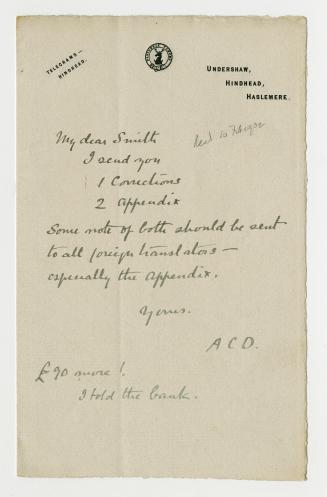 TELEGRAMS—
HINDHEAD.
UNDERSHAW,
HINDHEAD,
HASLEMERE.
My dear Smith
I send you
1 Corrections
2 Appendix
Some note of both should be sent
to all foreign translators —
especially the appendix.
Yours.
A C D.
£90 more!
I told the bank.